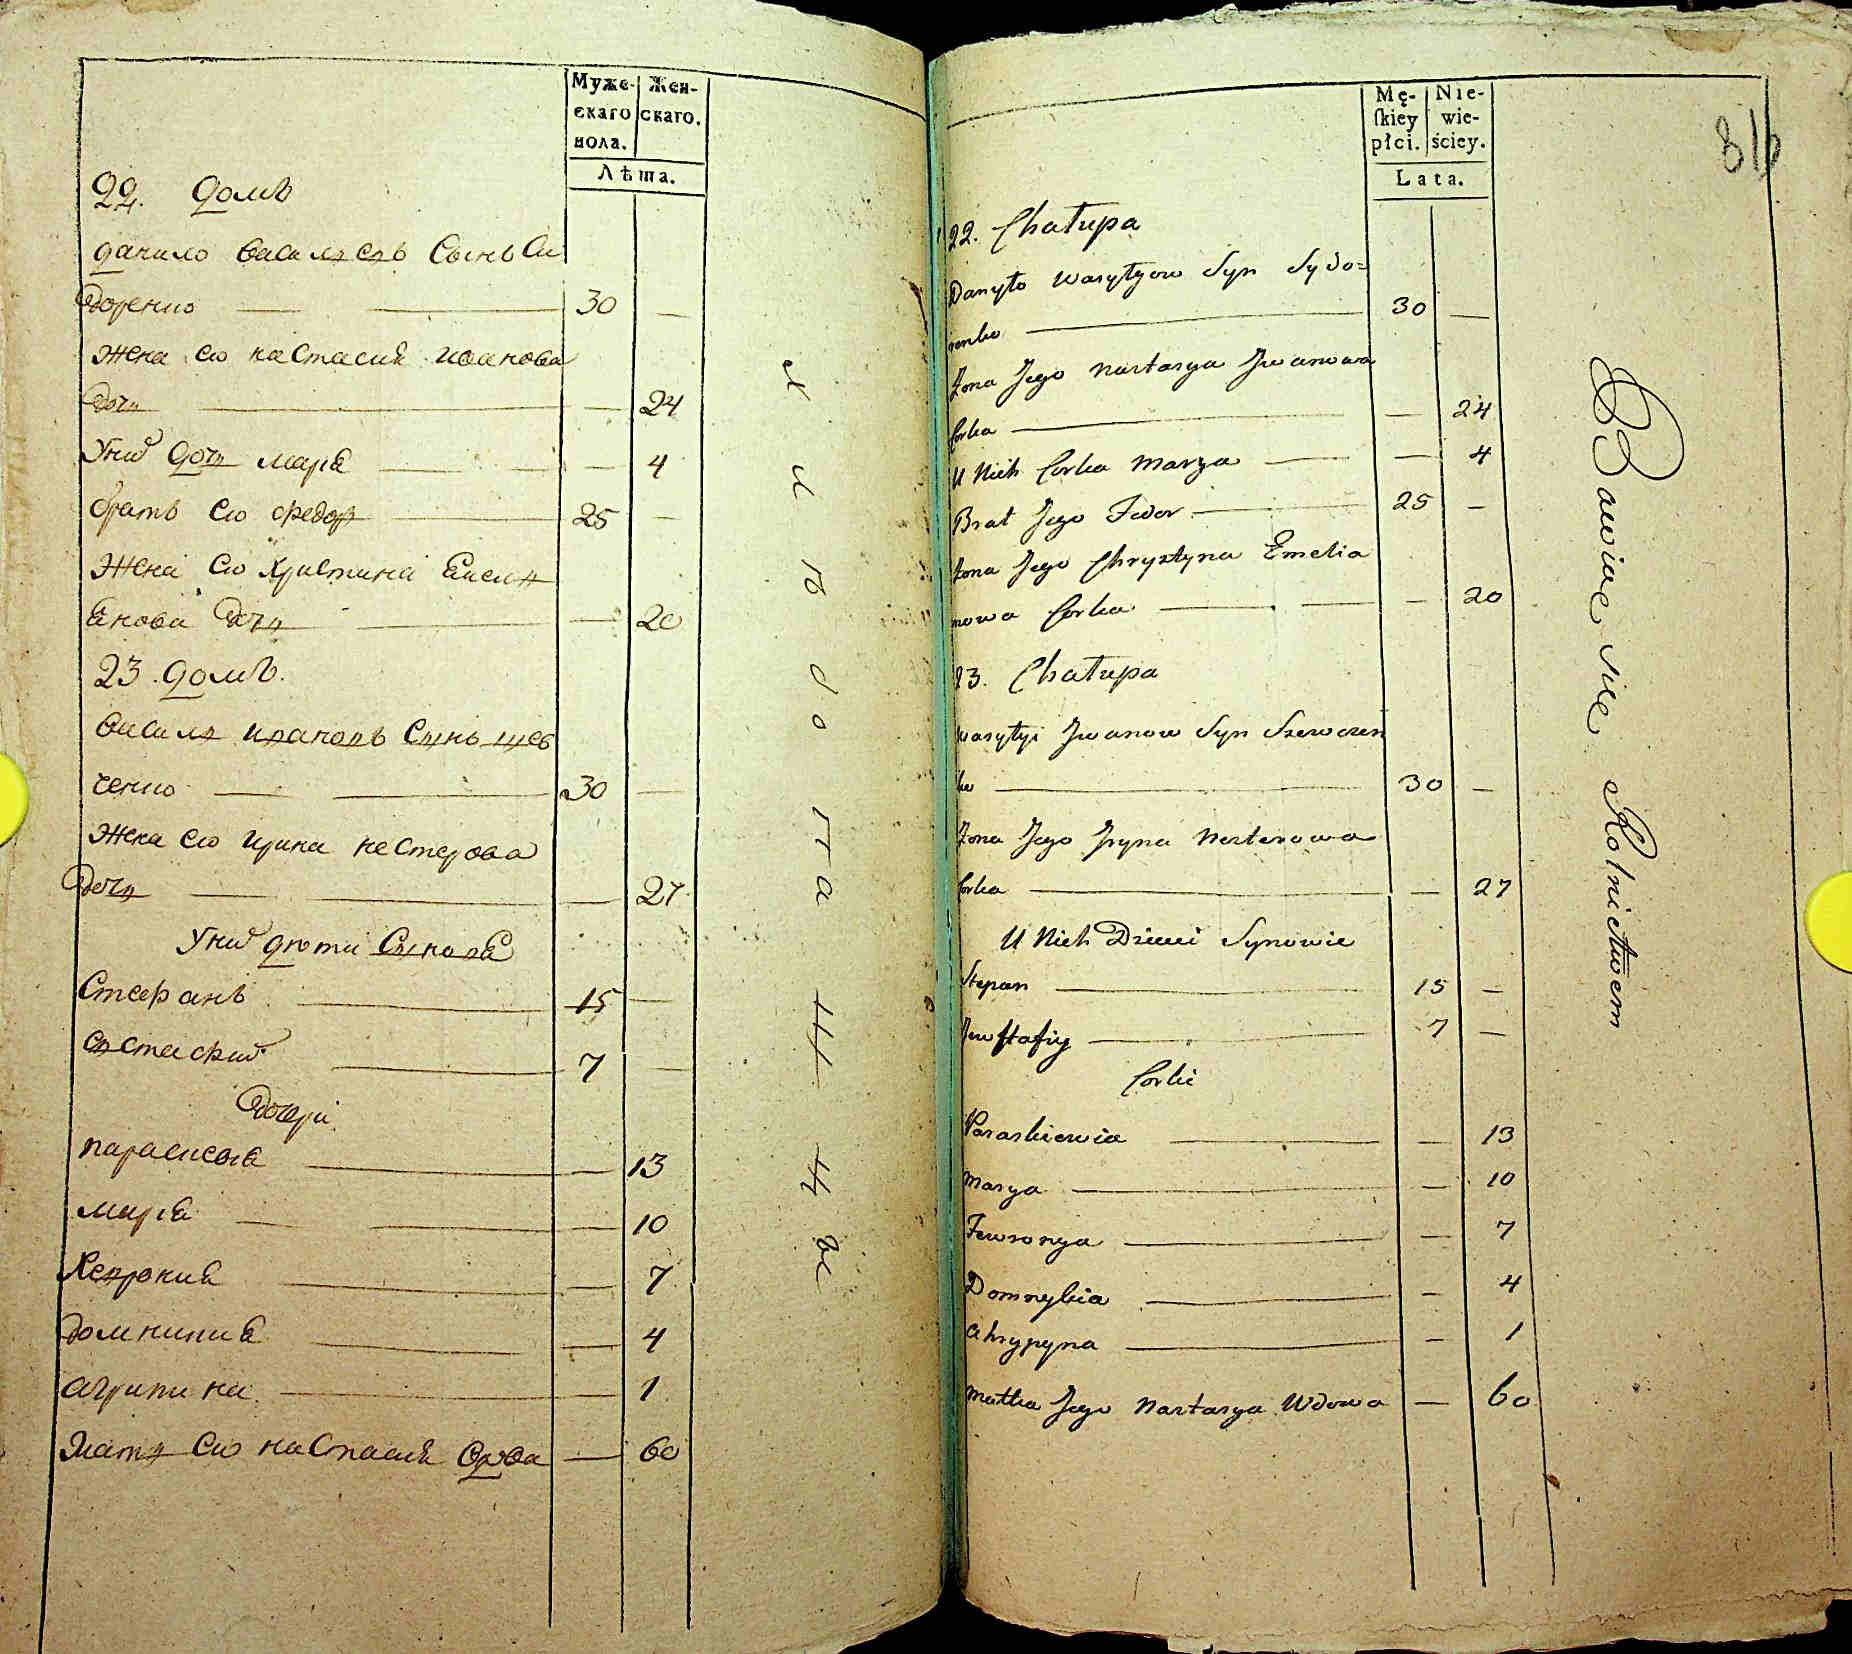 Муже-
скаго
пола.
Жен-
скаго.
Лѣта.
22. домъ
данило василѣевъ Сынъ Си
доренко 30 —
Жена ево настасия иванова
дочь — 24
У них дочь мария — 4
братъ ево федор 25 —
Жена ево христина Емели
анова дочь — 20
23. домъ.
василь иванов Сынъ шев
ченко 30 —
Жена ево ирина нестерова
дочь — 27
У них дети Сыновя
Степанъ 15 —
евстафий 7 —
дочери
параскевия — 13
мария — 10
домникия — 4
агрипина — 1
Мать ево настасия вдова — 60
хлѣбопашцы
Mę-
ſkiey
płci.
Nie-
wie-
ściey.
Lata.
816
22. Chałupa
Danyło Wasylyow Syn Sydo=
renko 30 —
Żona Jego Nastasya Jwanowa
Corka — 24
U Nich Corka Marya — 4
Brat Jego Fedor 25 —
Żona Jego Chrystyna Emelia
nowa Corka — 20
23. Chałupa
Wasylyi Jwanow Syn Szewczen
ko 30 —
Żona Jego Jryna Nesterowa
Corka — 27
U Nich Dzieci Synowie
Stepan 15 —
Jewstafiy 7 —
Corki
Paraskiewia — 13
Marya — 10
Fewronya — 7
Domnykia — 4
Ahrypyna — 1
Matka Jego Nastasya Wdowa — 60
Bawiące sie Rolnictwem